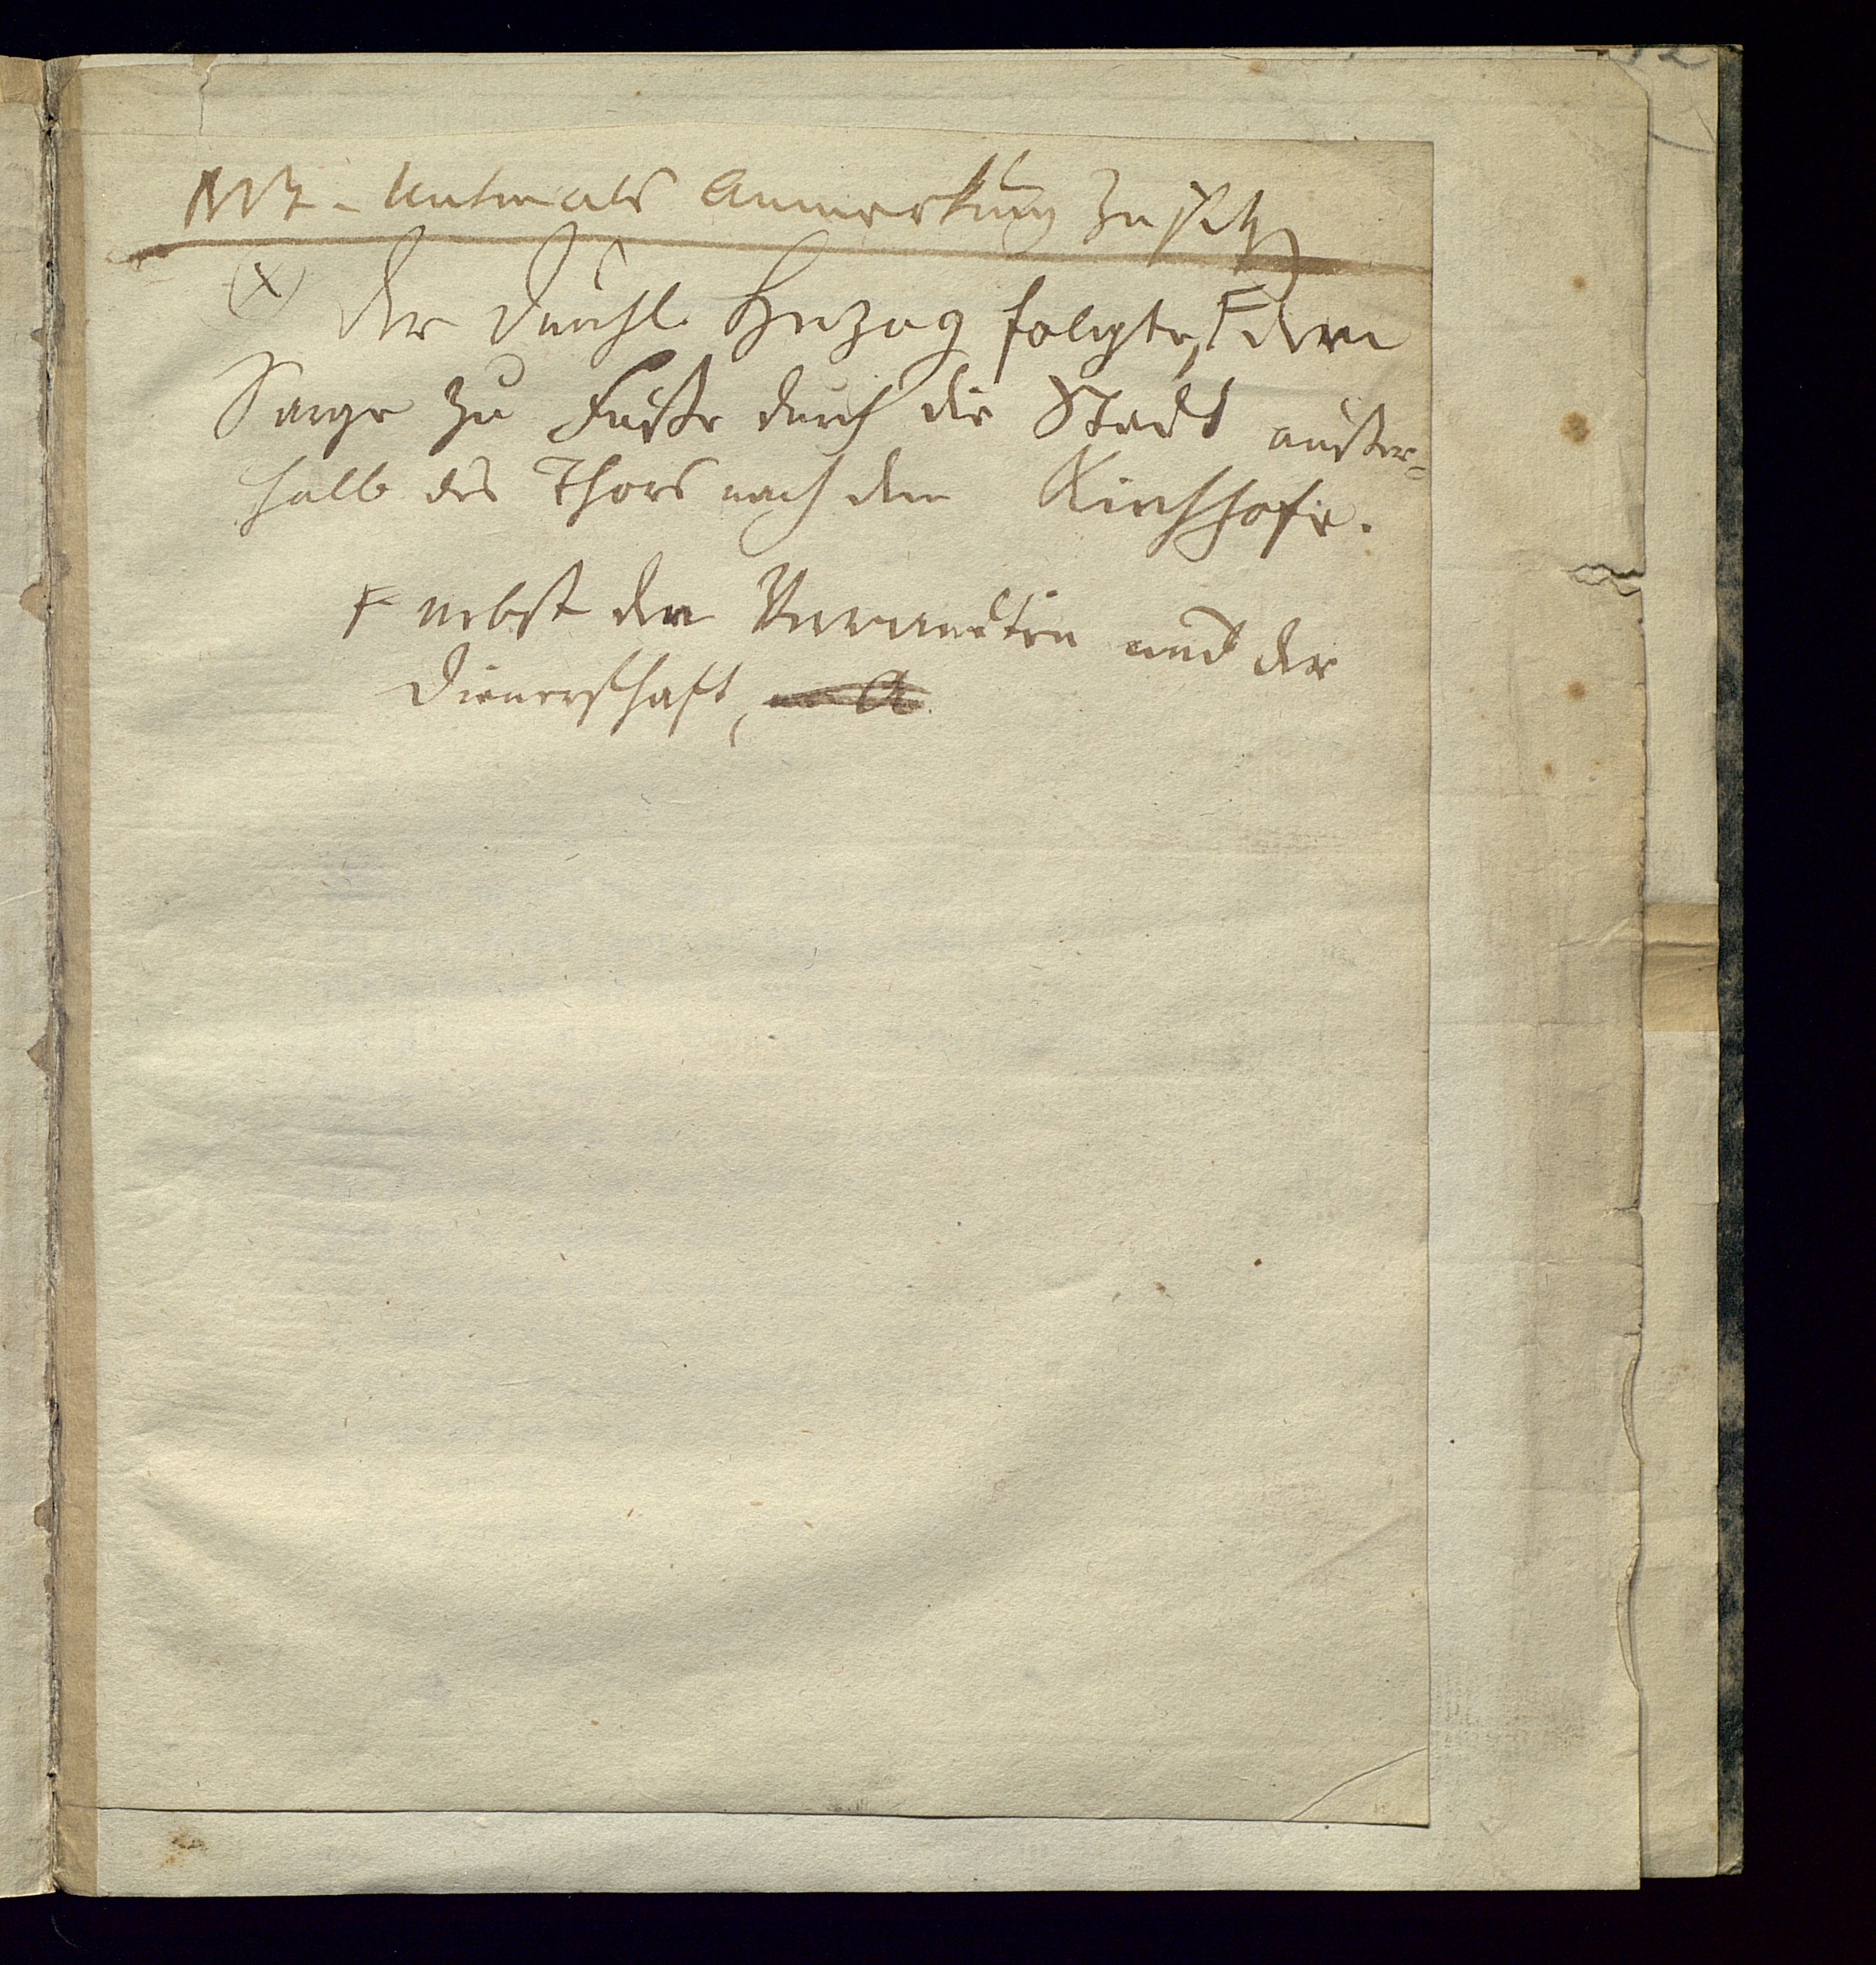 NB. Unten als Anmerkung zu setzen
(x) Der Durchl. Herzog folgte, F dem
Sarge zu Fuße durch die Stadt außer=
halb des Thors nach dem Kirchhofe.
F nebst den Verwandten und der
Dienerschaft,